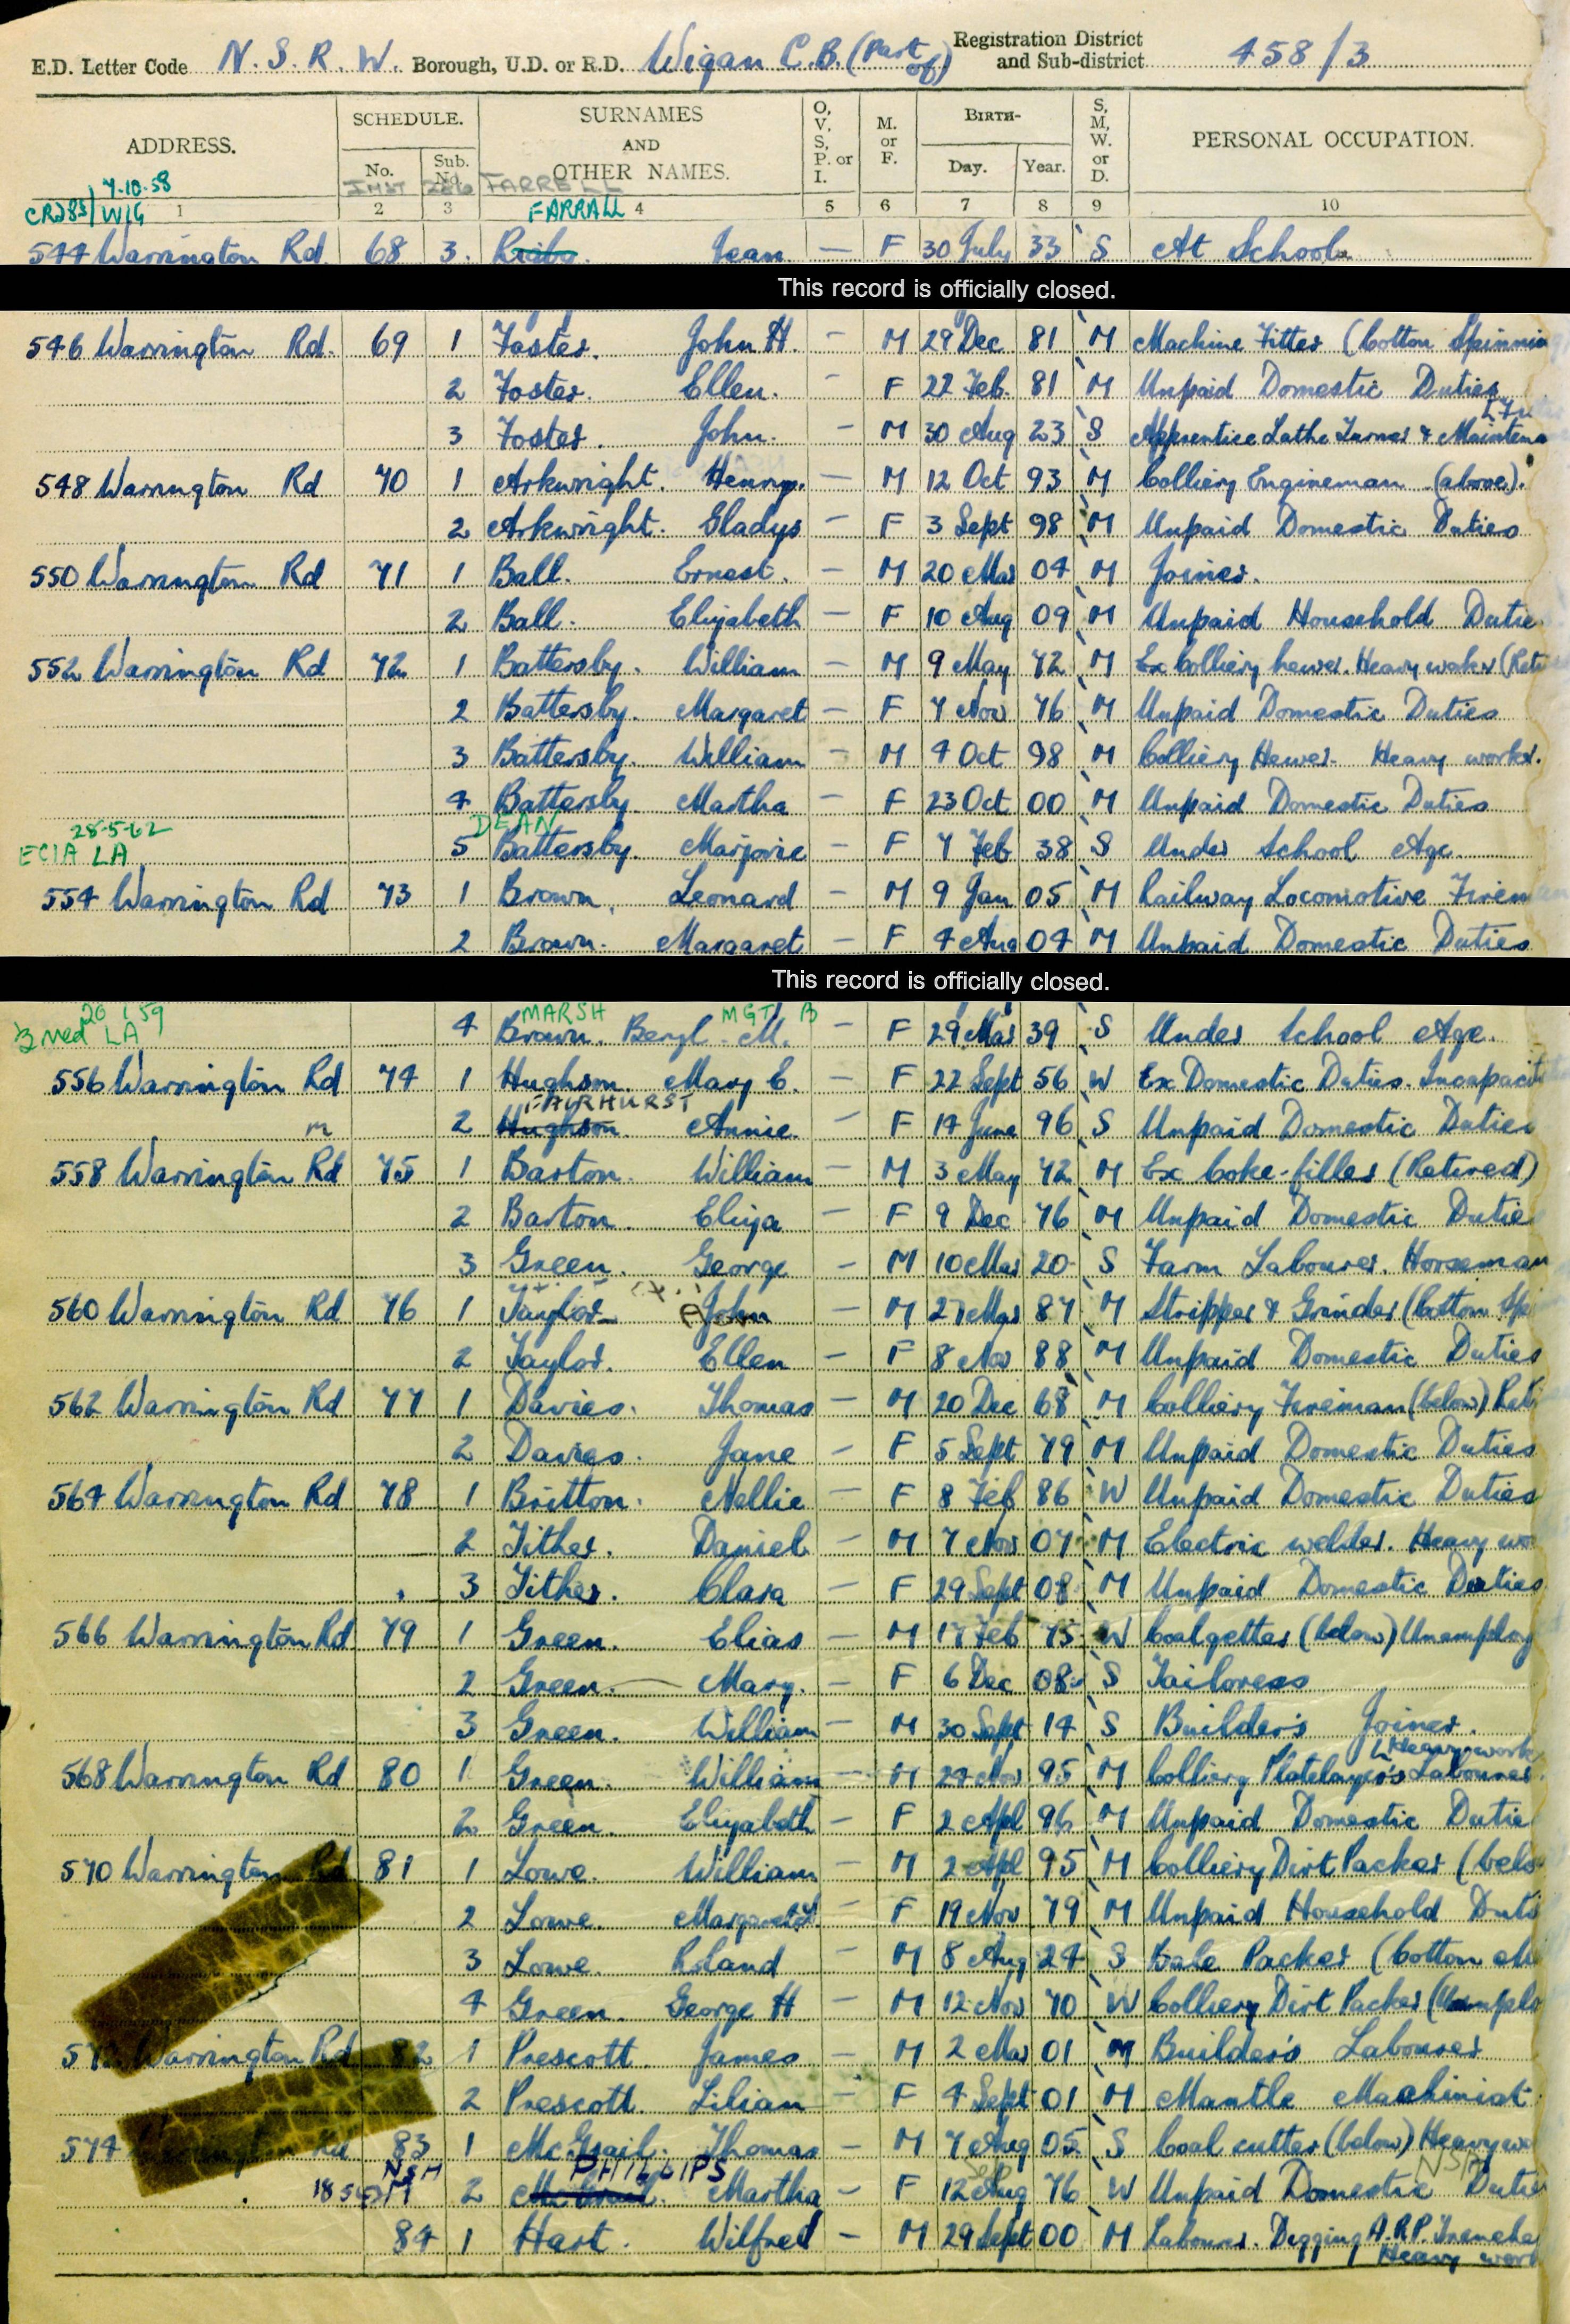 E.D. Letter Code N. S. R. W. Borough, U.D. or R.D. Wigan C.B. (Part of) Registration District and Sub-district 458/3
ADDRESS. SCHEDULE. No. Sub. No. SURNAMES AND OTHER NAMES. O, V, S, P. or I. M. or F. BIRTH- Day. Year. S, M, W. or D. PERSONAL OCCUPATION.
7-10-58 FARRELL
CR283/WIG 1 2 3 FARRALL 4 5 6 7 8 9 10
544 Warrington Rd. 68 3. Jean — F 30 July 33 S At School
This record is officially closed.
546 Warrington Rd. 69 1 Foster. John H. — M 29 Dec 81 M Machine Fitter (Cotton Spinnin
2 Foster. Ellen. — F 22 Feb. 81 M Unpaid Domestic Duties
3 Foster. John. — M 30 Aug 23 S Apprentice Lathe Turner & Maintena
548 Warrington Rd 70 1 Arkwright. Henry. — M 12 Oct 93 M Colliery Engineman (above).
2 Arkwright. Gladys — F 3 Sept 98 M Unpaid Domestic Duties
550 Warrington Rd 71 1 Ball. Ernest. — M 20 Mar 04 M Joiner.
2 Ball. Elizabeth — F 10 Aug 09 M Unpaid Household Dutie
552 Warrington Rd 72 1 Battersby. William — M 9 May 72 M Ex Colliery hewer. Heavy worker (Reti
2 Battersby. Margaret — F 7 Nov 76 M Unpaid Domestic Duties
3 Battersby. William — M 4 Oct 98 M Colliery Hewer. Heavy worker.
4 Battersby. Martha — F 23 Oct 00 M Unpaid Domestic Duties
28-5-62 DEAN
ECIA LA 5 Battersby. Marjorie — F 7 Feb 38 S Under School Age
554 Warrington Rd 73 1 Brown. Leonard — M 9 Jan 05 M Railway Locomotive Firem
2 Brown. Margaret — F 4 Aug 04 M Unpaid Domestic Duties
This record is officially closed.
20 1 59 MARSH MGT B
LA 4 Brown. Beryl. M. — F 29 Mar 39 S Under School Age.
556 Warrington Rd 74 1 Hughson. Mary E. — F 22 Sept 56 W Ex Domestic Duties. Incapacit
FAIRHURST
m 2 Hughson Annie. — F 14 June 96 S Unpaid Domestic Duties
558 Warrington Rd 75 1 Barton. William — M 3 May 72 M Ex Coke-filler (Retired)
2 Barton. Eliza — F 9 Dec 76 M Unpaid Domestic Dutie
3 Green. George — M 10 Mar 20 S Farm Labourer. Horseman
560 Warrington Rd 76 1 Taylor John — M 27 Mar 87 M Stripper & Grinder (Cotton Spi
2 Taylor. Ellen — F 8 Nov 88 M Unpaid Domestic Duties
562 Warrington Rd 77 1 Davies. Thomas — M 20 Dec 68 M Colliery Fireman (below) Reti
2 Davies. Jane — F 5 Sept 79 M Unpaid Domestic Duties
564 Warrington Rd 78 1 Britton. Nellie — F 8 Feb 86 W Unpaid Domestic Duties
2 Tither. Daniel — M 7 Nov 07 M Electric welder. Heavy wo
3 Tither. Clara — F 29 Sept 08 M Unpaid Domestic Duties
566 Warrington Rd 79 1 Green. Elias — M 17 Feb 75 W Coalgetter (below) Unemploy
2 Green. Mary. — F 6 Dec 08 S Tailoress
3 Green. William — M 30 Sept 14 S Builder's Joiner.
Heavy work
568 Warrington Rd 80 1 Green. William — M 24 Nov 95 M Colliery Platelayer's Labourer
2 Green. Elizabeth — F 2 Apl 96 M Unpaid Domestic Dutie
570 Warrington Rd 81 1 Lowe. William — M 2 Apl 95 M Colliery Dirt Packer (belo
2 Lowe. — F 19 Nov 79 M Unpaid Household Duti
3 Lowe. Roland — M 8 Aug 24 S Bale Packer (Cotton
4 Green. George H — M 12 Nov 70 W Colliery Dirt Packer (Unemplo
Warrington Rd 82 1 Prescott. James — M 2 Mar 01 M Builder's Labourer
2 Prescott. Lilian — F 4 Sept 01 M Mantle Machinist
574 Rd 83 1 McGrail. Thomas — M 7 Aug 05 S Coal cutter (below) Heavy wo
NSH PHILLIPS NSH
2 Martha — F 12 Aug 76 W Unpaid Domestic Dutie
84 1 Hart. Wilfred — M 29 Sept 00 M Labourer. Digging A.R.P. Trenche
Heavy work